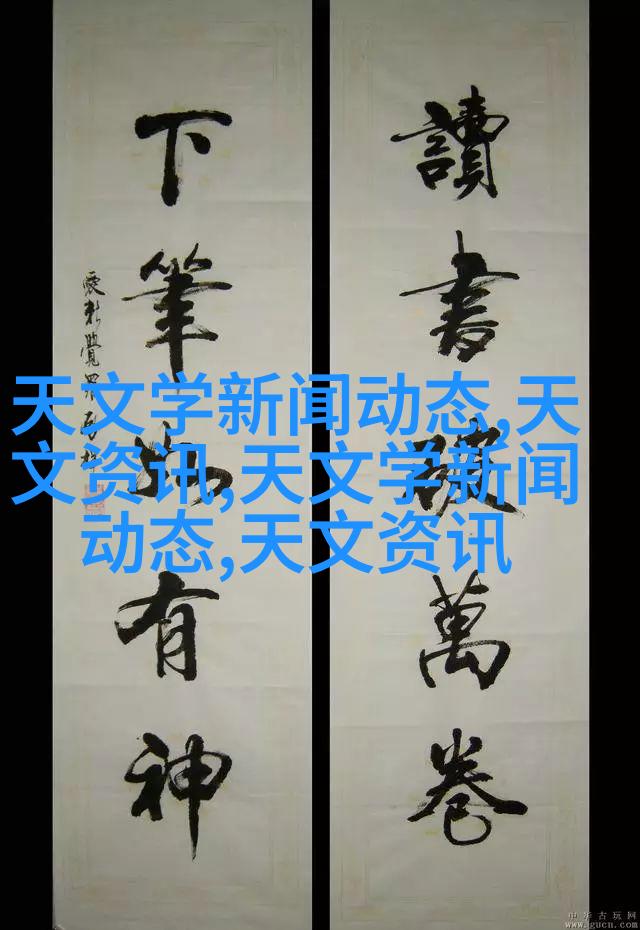 讀書破萬卷
下筆如有神
天文学新闻动态,天
文资讯,天文学新闻
动态,天文资讯
中华古玩网
www.gucn.com